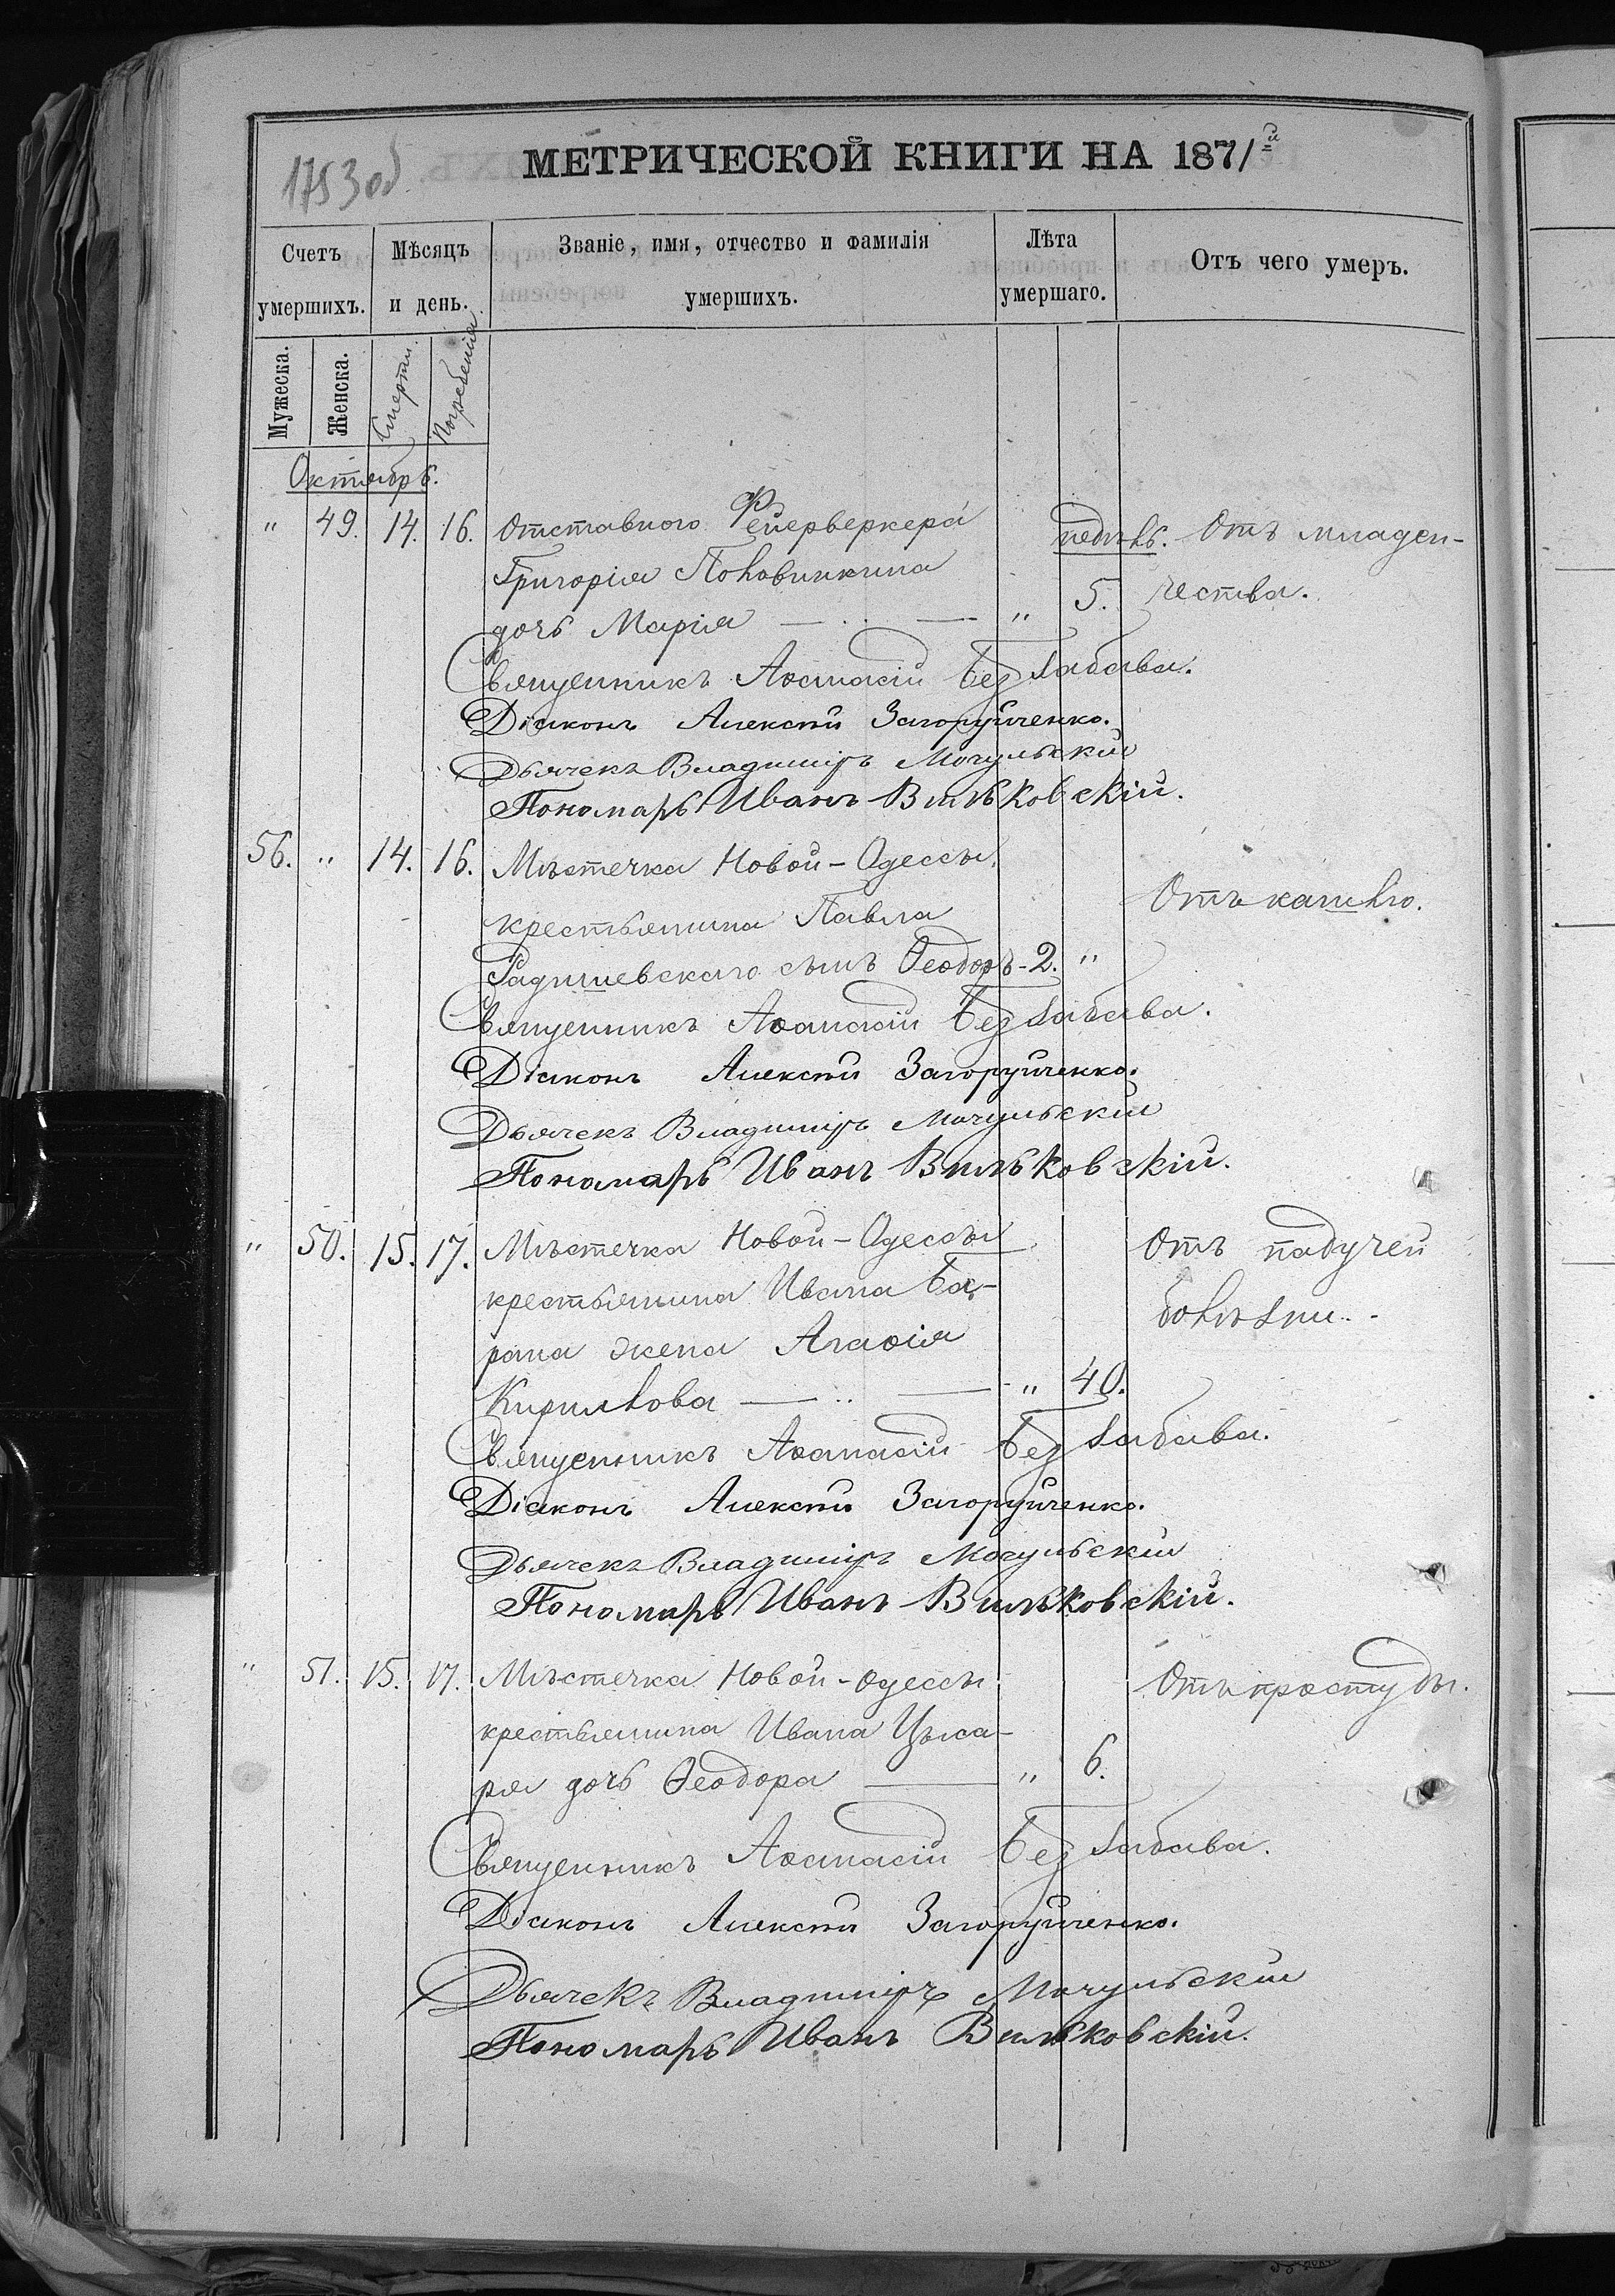 1753 об
МЕТРИЧЕСКОЙ КНИГИ НА 1871й
Счетъ умершихъ.
Мѣсяцъ и день.
Званіе, имя, отчество и фамилія умершихъ.
Лѣта умершаго.
Отъ чего умеръ.
Мужеска.
Женска.
Смерти.
Погребенія
Октябрь.
" 49. 14. 16. Отставного Фейерверкера недѣль. Отъ младен-
Григорія Половинкина
дочь Марія — .. — " 5. чества.
Священникъ Аѳанасій Беззабава.
Діаконъ Алексѣй Загоруйченко.
Дьячекъ Владиміръ Мочульскій
Пономарь Иванъ Вильковскій.
56. " 14. 16. Мѣстечка Новой-Одессы,
крестьянина Павла Отъ кашлю.
Радишевскаго сынъ Ѳеодоръ - 2. "
Священникъ Аѳанасій Беззабава.
Діаконъ Алексѣй Загоруйченко.
Дьячекъ Владиміръ Мочульскій
Пономарь Иванъ Вильковскій.
" 50. 15. 17. Мѣстечка Новой-Одессы Отъ падучей
крестьянина Ивана Ба- болѣзни. -
рана жена Агаѳія
Кирилова — .. — " 40.
Священникъ Аѳанасій Беззабава.
Діаконъ Алексѣй Загоруйченко.
Дьячекъ Владиміръ Мочульскій
Пономарь Иванъ Вильковскій.
" 51. 15. 17. Мѣстечка Новой-Одессы Отъ простуды.
крестьянина Ивана Цыса-
ря дочь Ѳеодора — " 6.
Священникъ Аѳанасій Беззабава.
Діаконъ Алексѣй Загоруйченко.
Дьячекъ Владиміръ Мочульскій
Пономарь Иванъ Вильковскій.